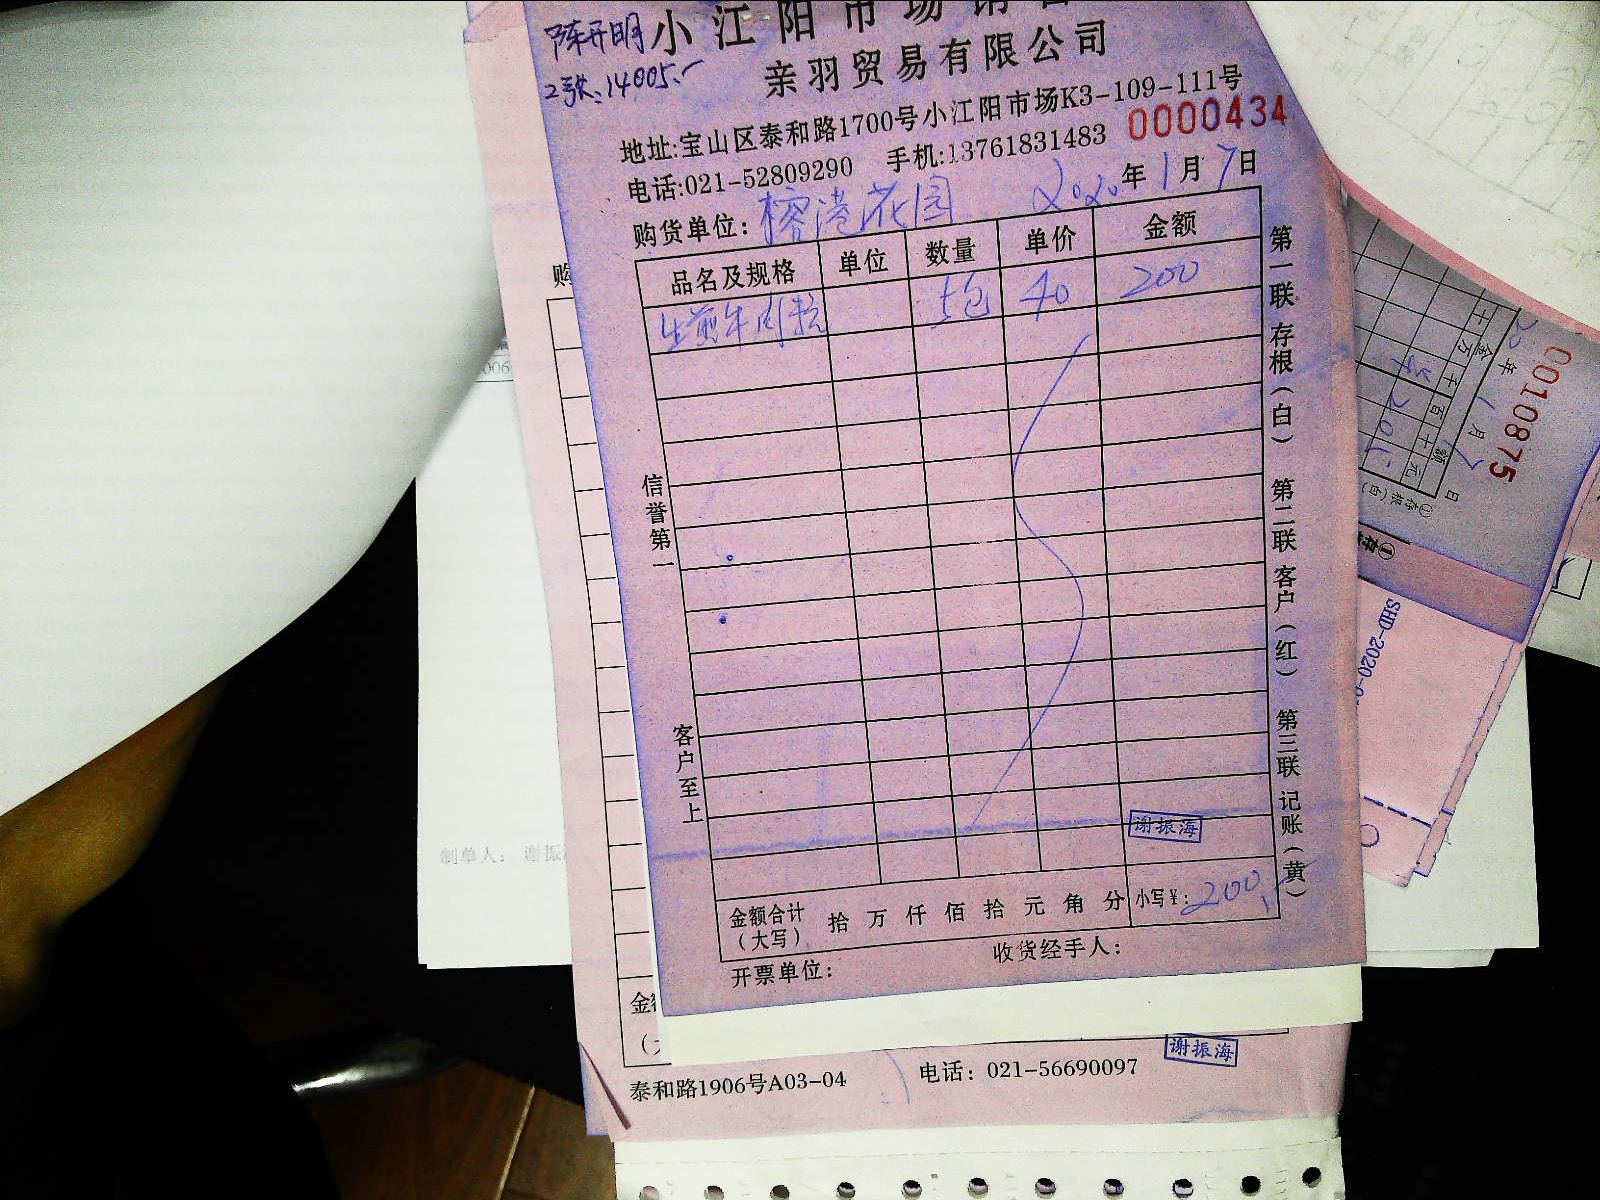 陈开明
2张:14005.-
小江阳市场销售
亲羽贸易有限公司
地址:宝山区泰和路1700号小江阳市场K3-109-111号
电话:021-52809290 手机:13761831483 0000434
购货单位: 榕港花园 2020年1月7日
品名及规格 单位 数量 单价 金额
生煎牛肉粒 5包 40 200
信誉第一
客户至上
第一联 存根(白) 第二联 客户(红) 第三联 记账(黄)
谢振海
金额合计(大写) 拾 万 仟 佰 拾 元 角 分 小写¥: 200.-
开票单位: 收货经手人:
购
金
泰和路1906号A03-04 电话: 021-56690097
谢振海
制单人: 谢振
006
0010875
年1月7日
金额
十万千百十元
①存根(白)
SHD-2020-0